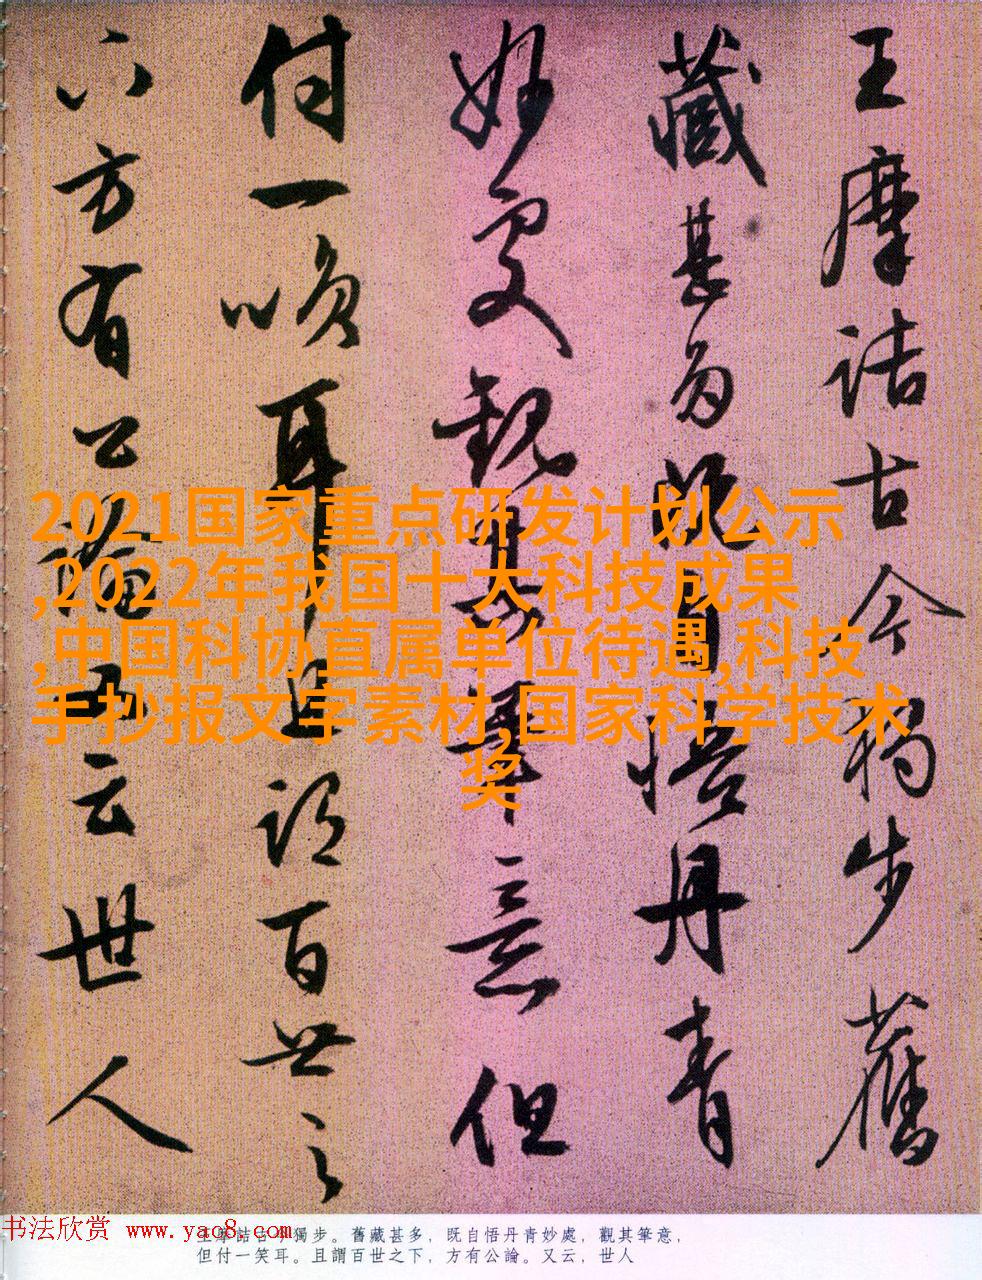 王摩詰古今獨步舊
藏甚多既自悟丹青
妙處觀其筆意但
付一唤耳且謂百世之
下方有公論又云世人
2021国家重点研发计划公示
,2022年我国十大科技成果
,中国科协直属单位待遇,科技
手抄报文字素材,国家科学技术
奖
书法欣赏 www.yac8.com
王摩詰古今獨步。舊藏甚多，既自悟丹青妙處，觀其筆意，
但付一笑耳。且謂百世之下，方有公論。又云，世人